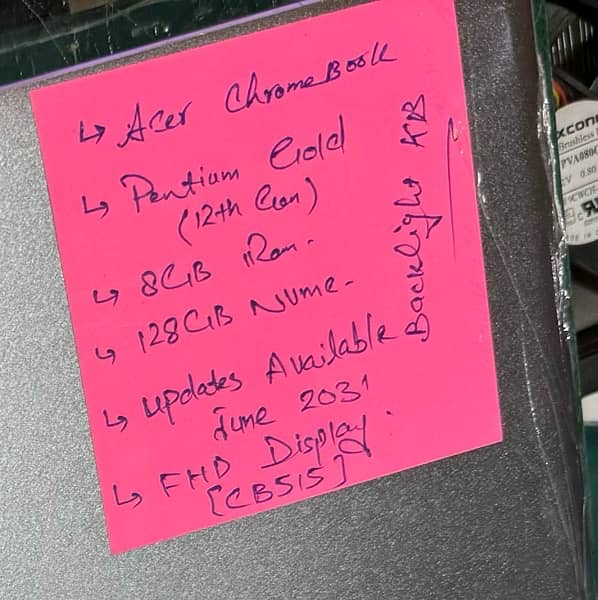 ↳ Acer ChromeBook
↳ Pentium Gold
(12th Gen)
↳ 8GB Ram.
↳ 128GB Nvme.
↳ updates Available
June 2031
↳ FHD Display.
[CB515]
Backlight KB
Brushless
PVA080G
0.80